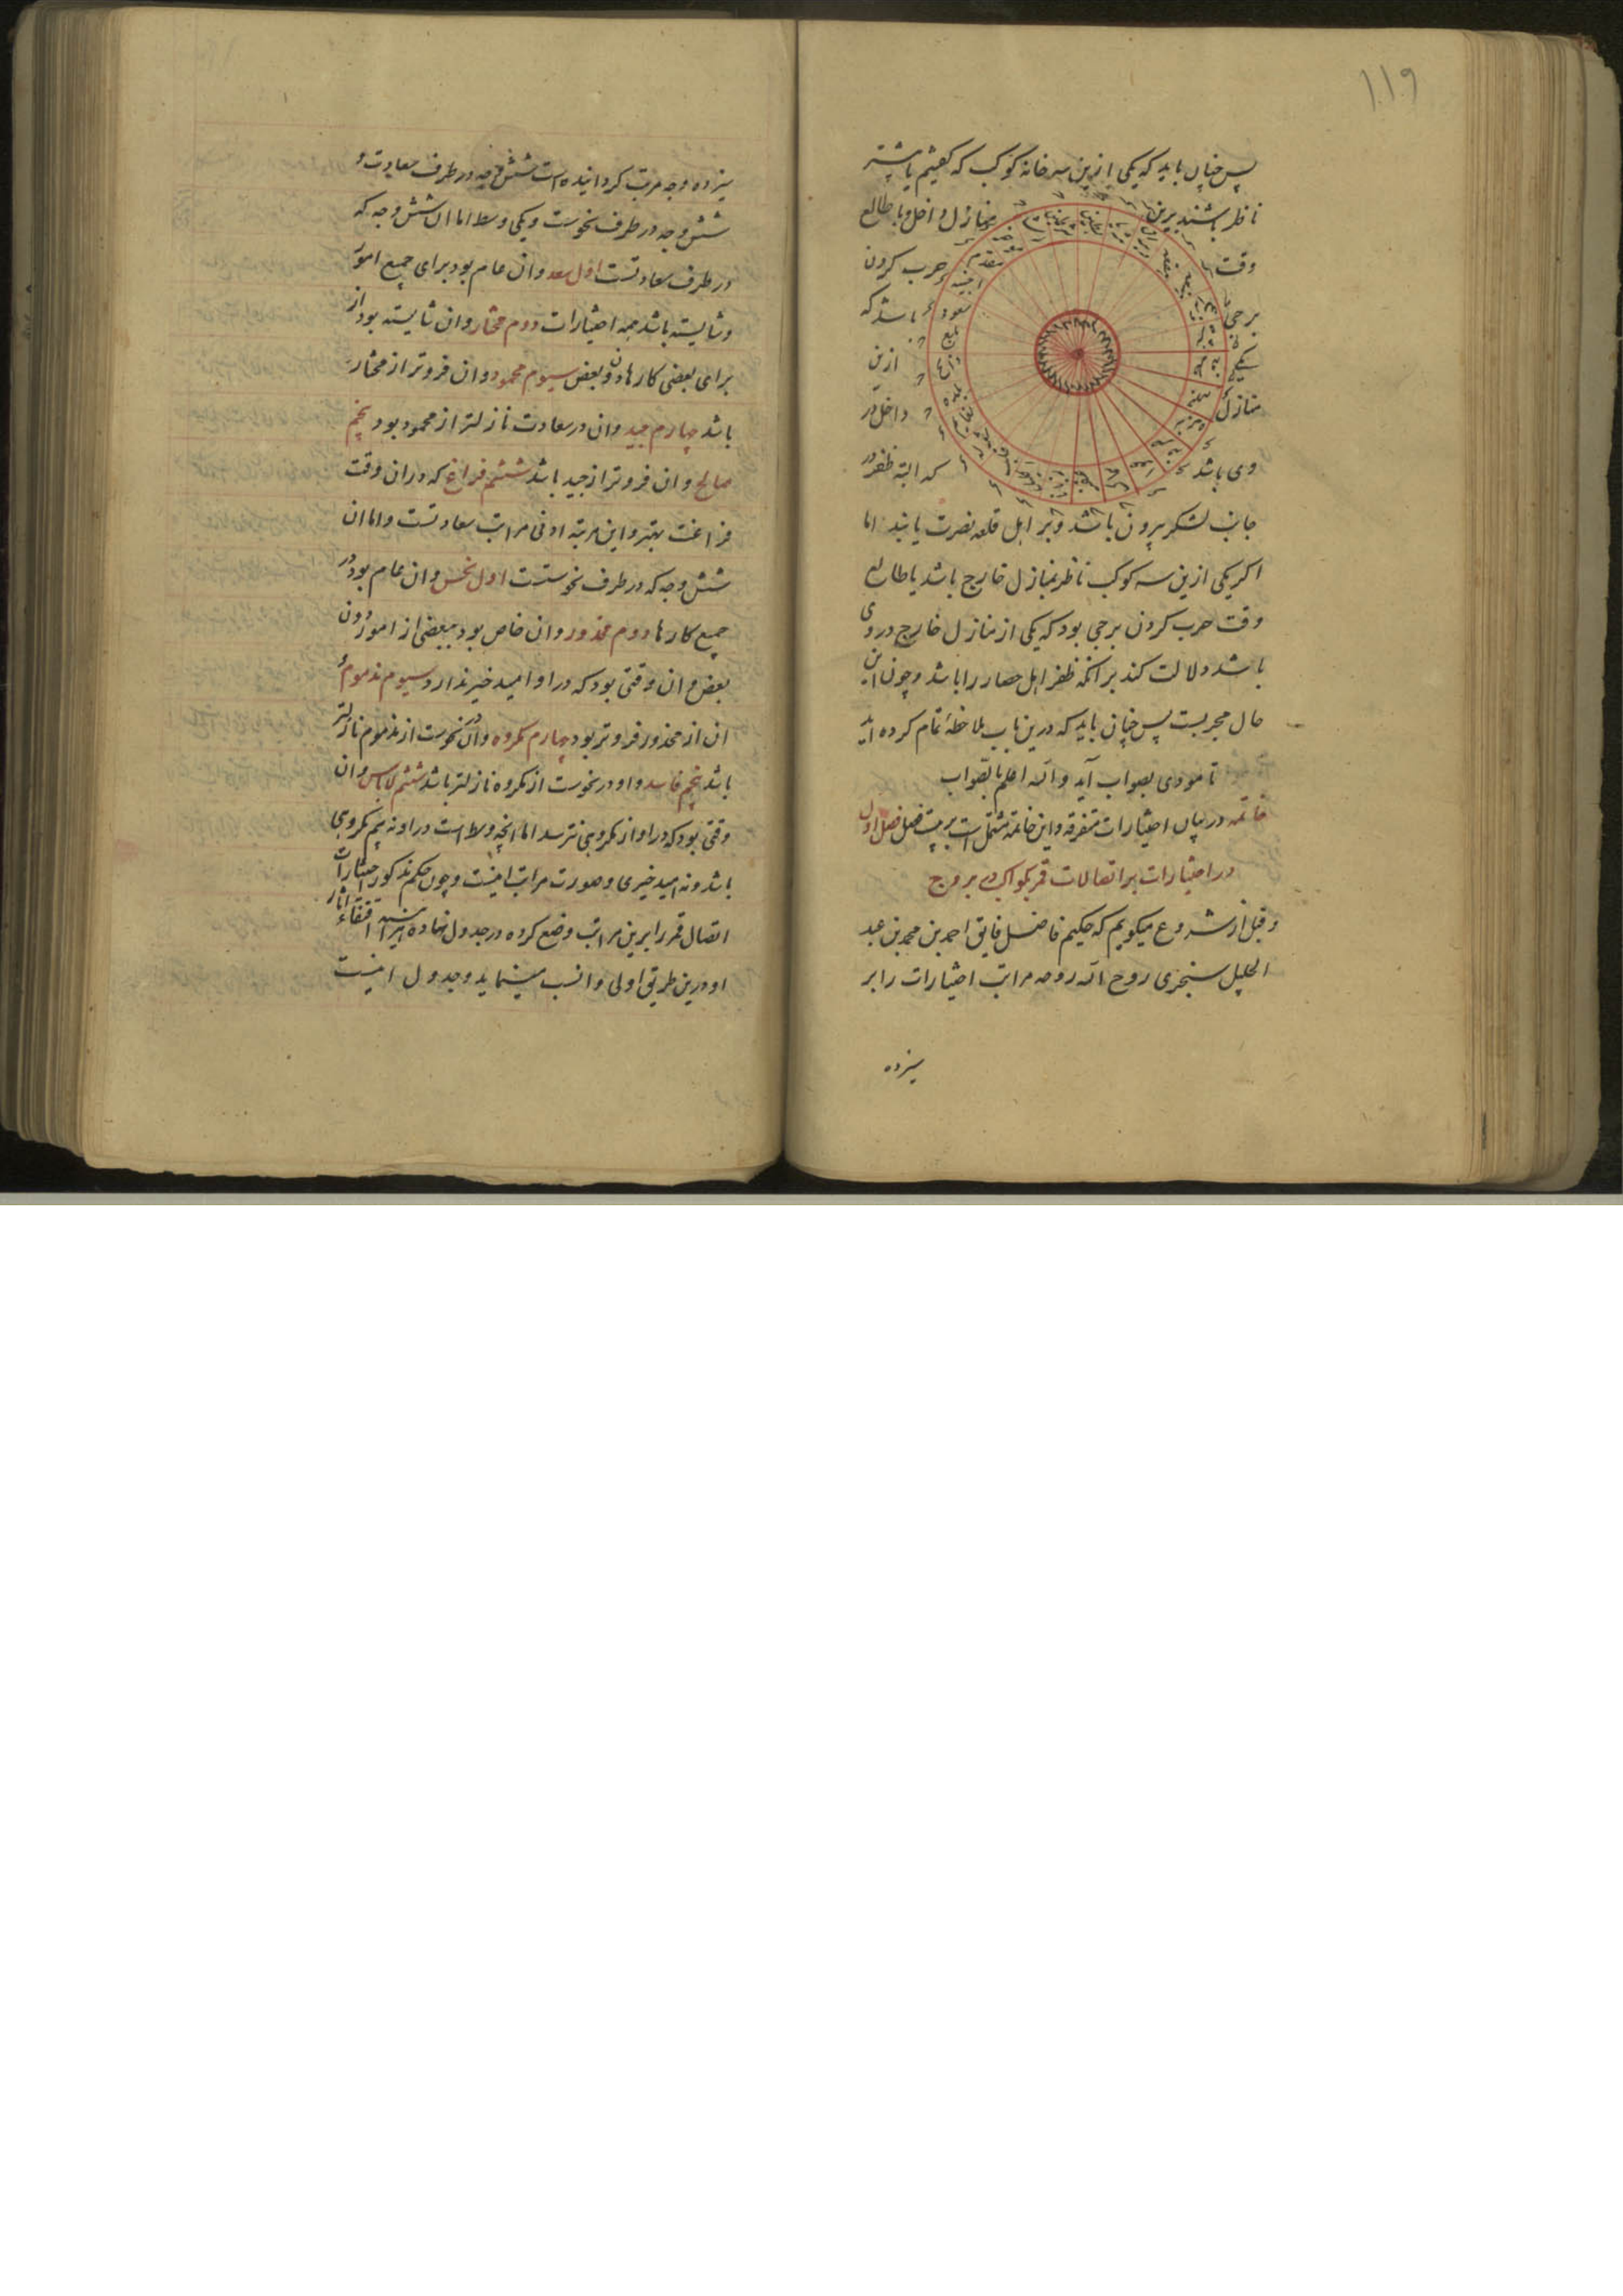 ۱۱۹
پس چنان باید که یکی ازین سه خانه کوکب که کفتیم یا بیشتر
ناظر باشند برین منازل داخل و یا طالع
وقت حرب کردن
برجی باشد که
یکی ازین
منازل داخل در
وی باشد که البته ظفر در
جانب لشکر بیرون باشد و بر اهل قلعه نصرت یابند اما
اکر یکی ازین سه کوکب ناظر بمنازل خارج باشد یا طالع
وقت حرب کردن برجی بود که یکی از منازل خارج در وی
باشد دلالت کند بر انکه ظفر اهل حصار را باشد و چون این
حال مجربست پس چنان باید که درین باب ملاحظهٔ تمام کرده اید
تا مودی بصواب آید و الله اعلم بالصواب
خاتمه در بیان اختیارات متفرقه و این خاتمه مشتمل است بر بیست فصل فصل اول
در اختیارات بر اتصالات قمر بکواکب در بروج
و قبل از شروع میکویم که حکیم فاضل فایق احمد بن محمد بن عبد
الجلیل سنجری روح الله روحه مراتب اختیارات را بر
سیزده
سیزده وجه مرتب کردانیده است شش وجه در طرف سعادت و
شش وجه در طرف نحوست و یکی وسط اما ان شش وجه که
در طرف سعادتست اول سعد و ان عام بود برای جمیع امور
و شایسته باشد همه اختیارات دوم مختار و ان شایسته بود از
برای بعضی کارها دون بعض سیوم محمود و ان فروتر از مختار
باشد چهارم جید و ان در سعادت نازلتر از محمود بود پنجم
صالح و ان فروتر از جید باشد ششم فراغ که در ان وقت
فراغت بهتر و این مرتبه ادنی مراتب سعادتست و اما ان
شش وجه که در طرف نحوستست اول نحس و ان عام بود در
جمیع کارها دوم محذور و ان خاص بود ببعضی از امور دون
بعض و ان وقتی بود که در او امید خیر ندارد سیوم مذموم و
ان از محذور فروتر بود چهارم مکروه و ان در نحوست از مذموم نازلتر
باشد پنجم فاسد و او در نحوست از مکروه نازلتر باشد ششم لاباس و ان
وقتی بود که در او از مکروهی نترسد اما انچه وسط است در او نه بیم مکروهی
باشد و نه امید خیری و صورت مراتب اینست و چون حکیم مذکور اختیارات
اتصال قمر را برین مراتب وضع کرده در جدول نهاده اقتفاء اثار
او درین طریق اولی و انسب مینماید و جدول اینست